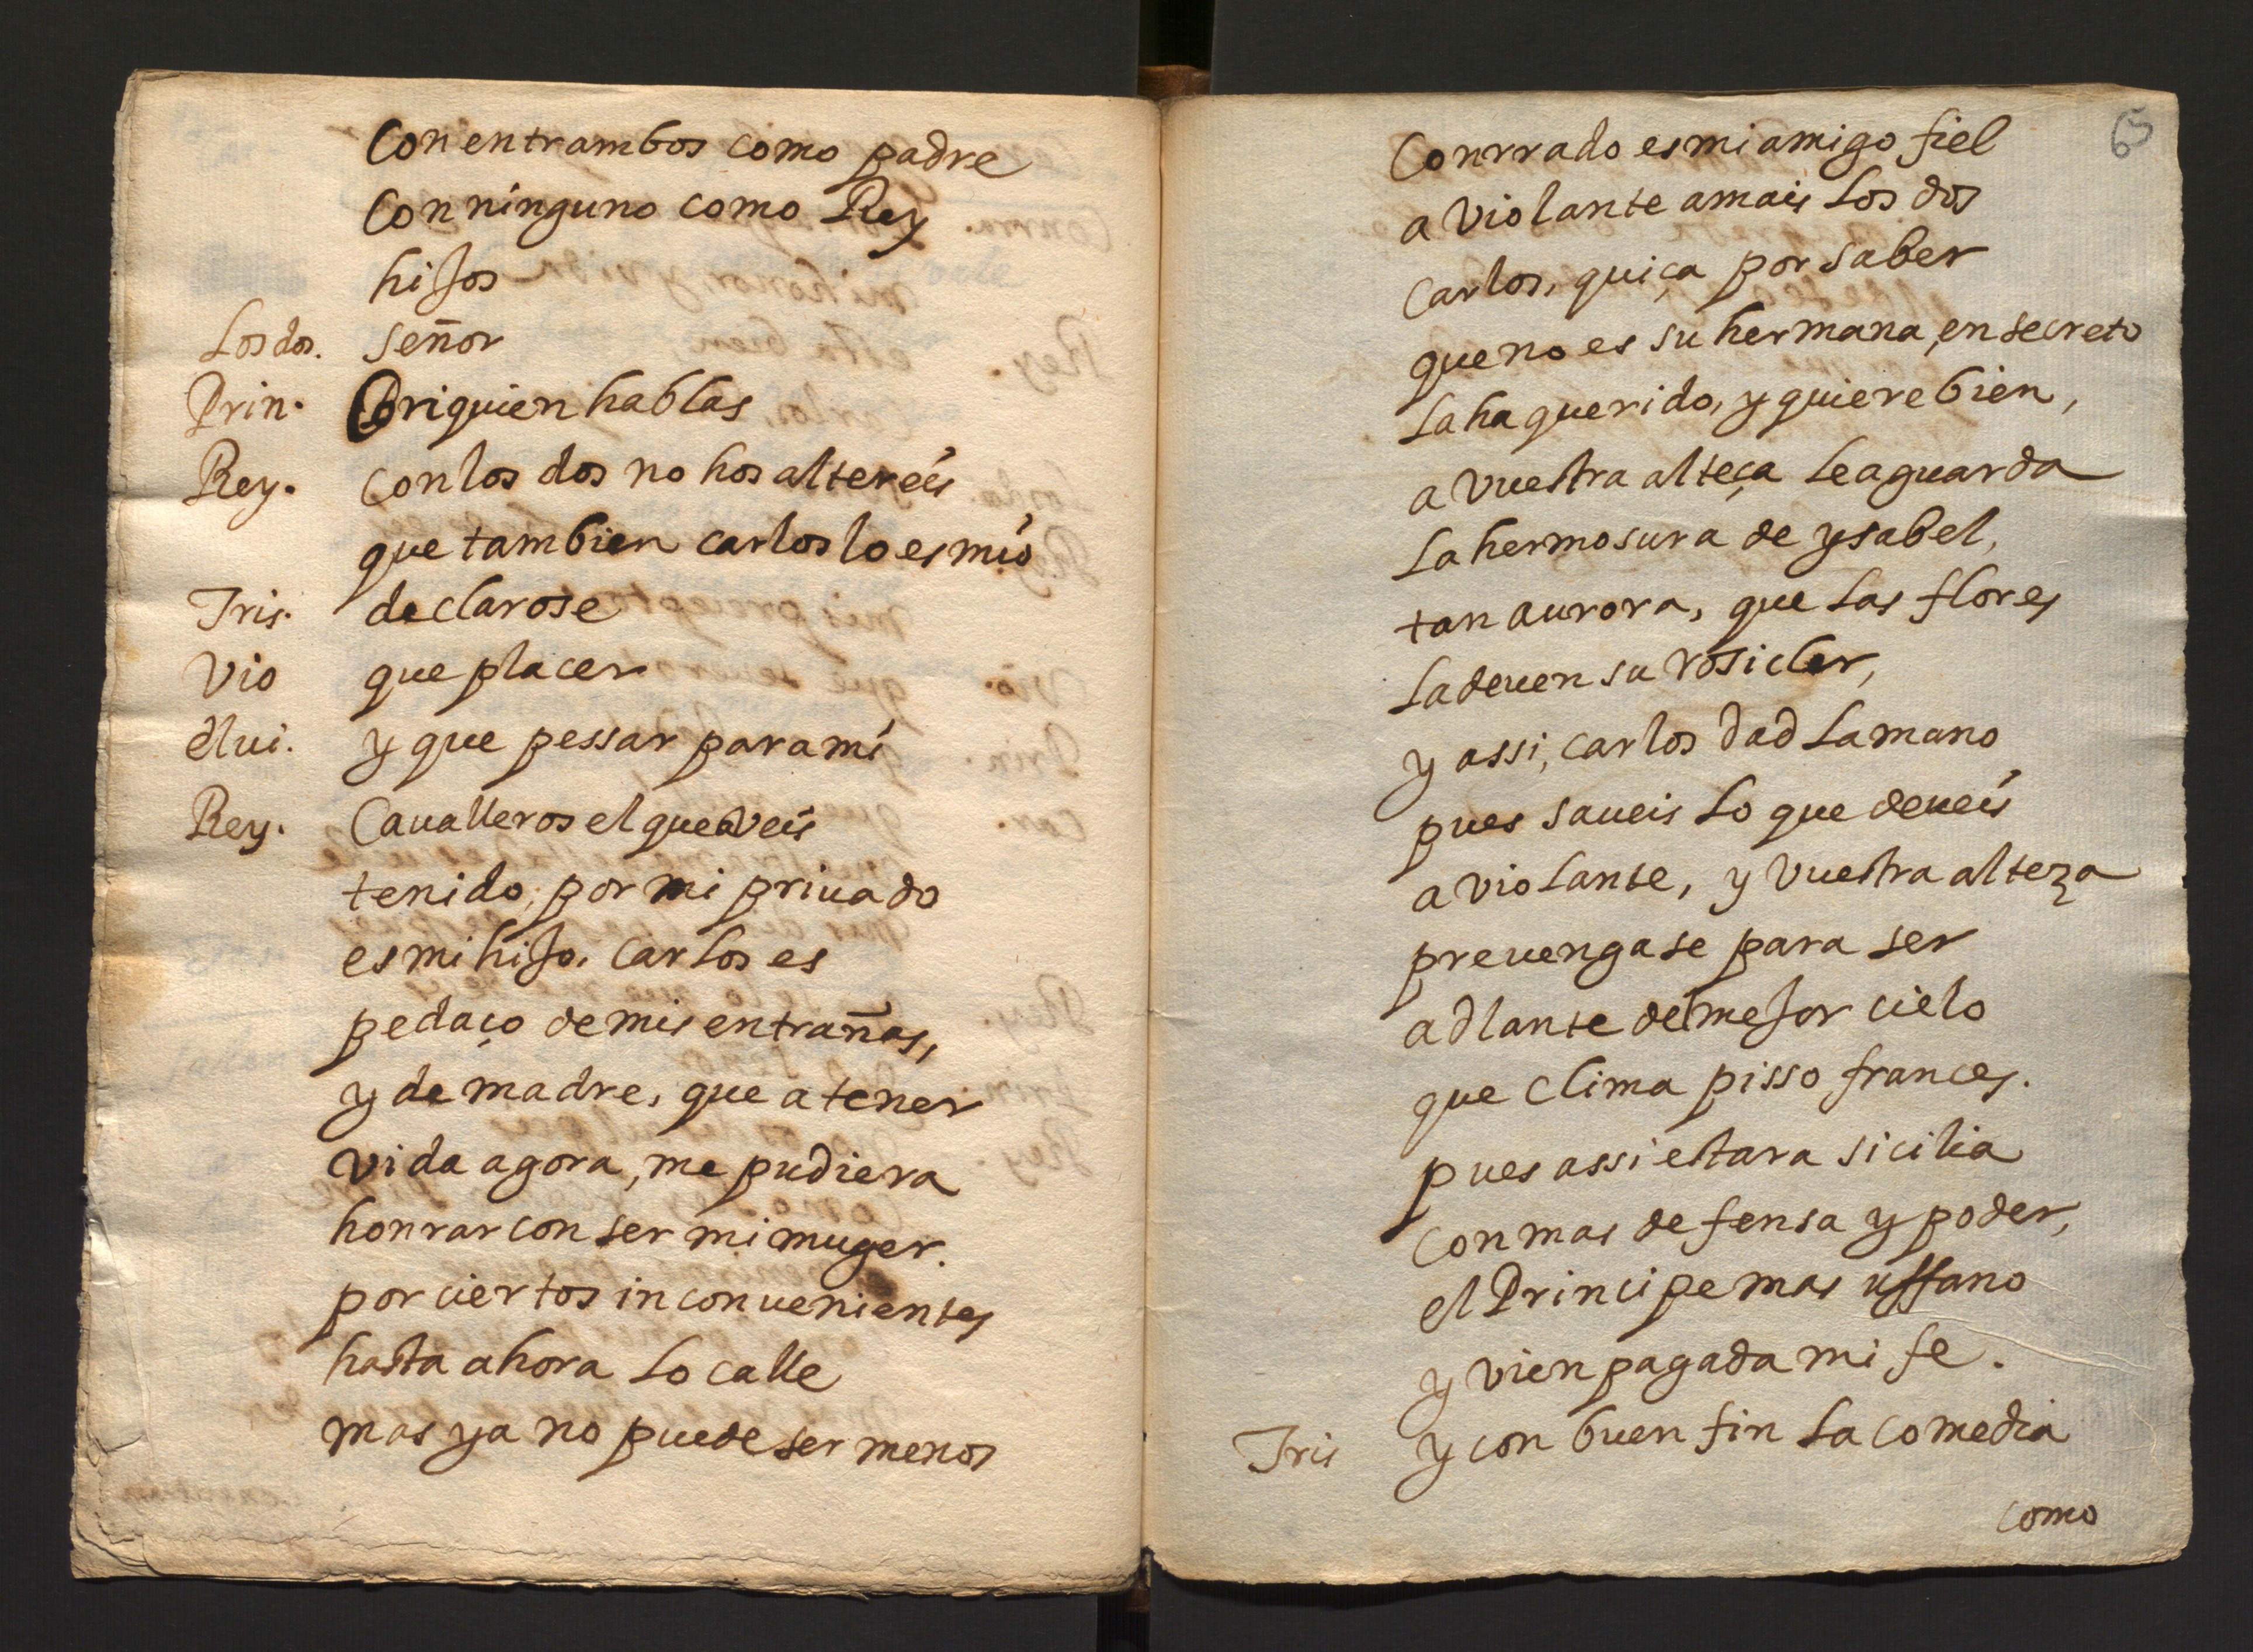 Con entrambos como padre
Con ninguno como Rey
hijos
Los dos. señor
Prin. Con quien hablas
Rey. con los dos no hos altereís
que tambien carlos lo es mío
Tris. declarose
Vio que placer
elui. y que pessar para mí
Rey. Caualleros el que veís
tenido, por mi priuado
es mi hijo, carlos es
pedaço de mis entrañas,
y de madre, que a tener
vida agora, me pudiera
honrar con ser mi muger.
por ciertos inconuenientes
hasta ahora lo calle
mas ya no puede ser menos
65
Conrrado es mi amigo fiel
a violante amais los dos
carlos, quiça por saber
que no es su hermana, en secreto
la ha querido, y quiere bien,
a vuestra alteça le aguarda
la hermosura de ysabel,
tan aurora, que las flores
la deuen su rosicler,
y assi, carlos dad la mano
pues saueis lo que deueís
a violante, y vuestra alteza
preuengase para ser
adlante del mejor cielo
que clima pisso frances.
pues assi estara sicilia
con mas defensa y poder,
el Principe mas uffano
y vien pagada mi fe.
Tris y con buen fin la comedia
como